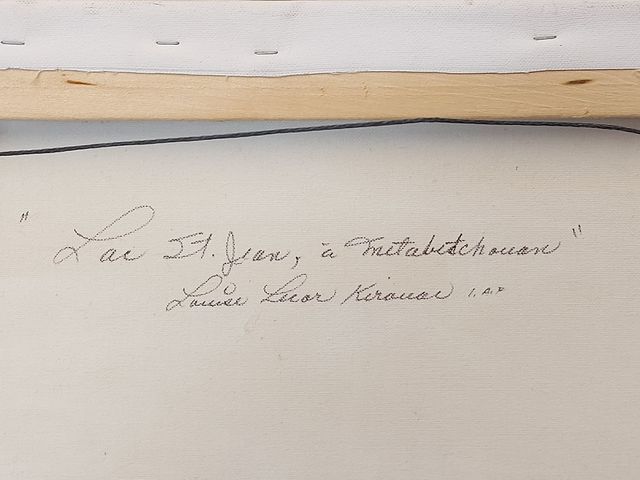 "Lac St. Jean, à Metabetchouan"
Louise Lecor Kirouac I.A.F